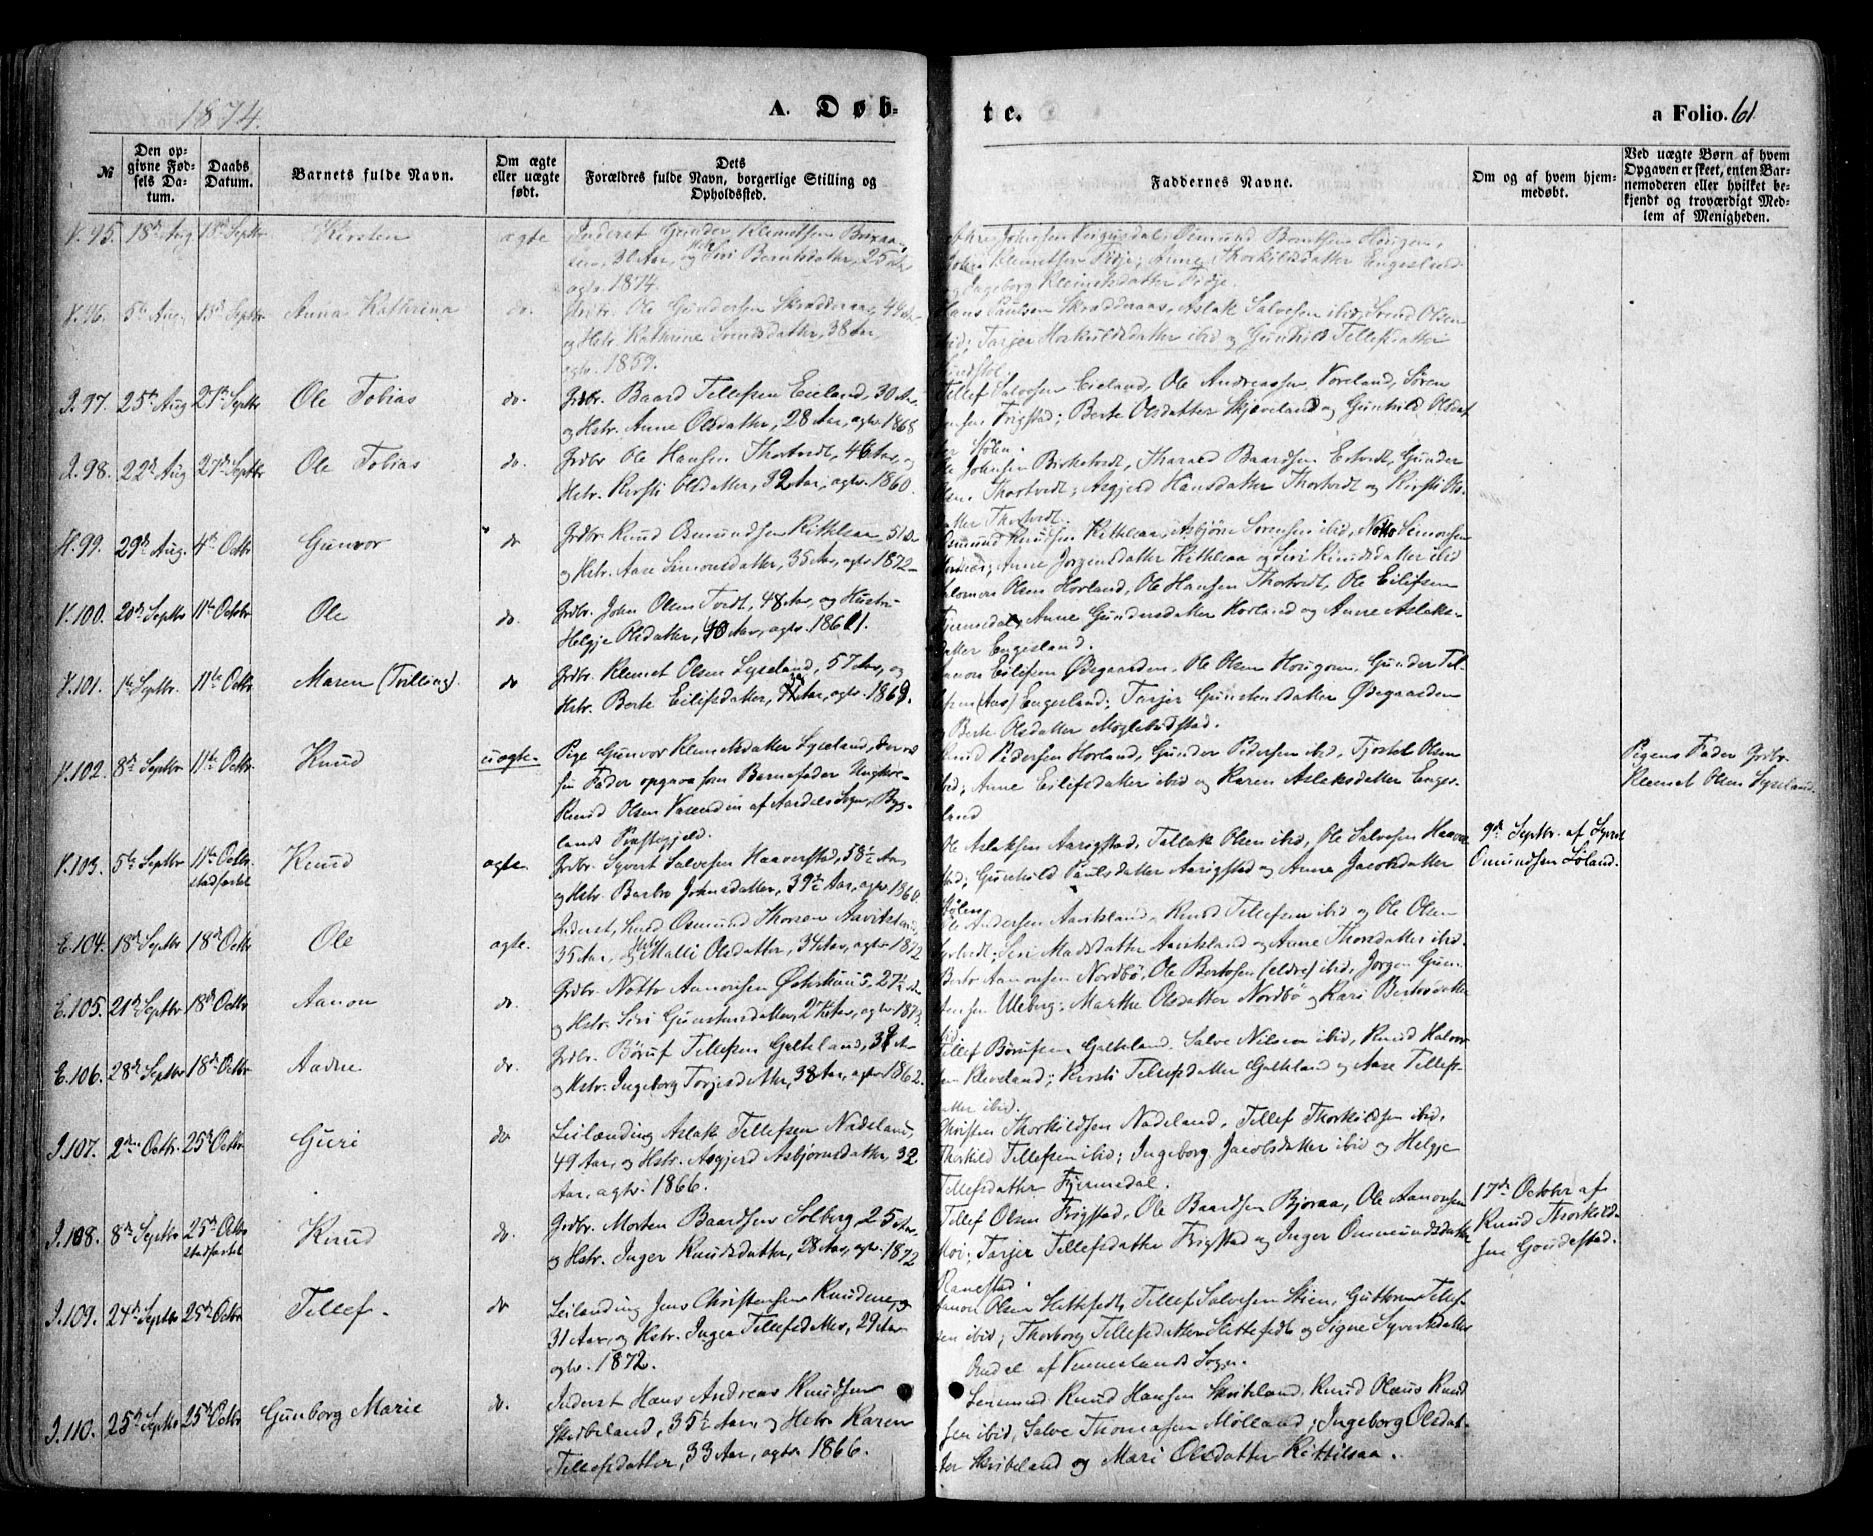 1874.
A. Døb-
te.
a Folio. 61
№
Den op-
givne Fød-
sels Da-
tum.
Daabs
Datum.
Barnets fulde Navn.
Om ægte
eller uægte
født.
Dets
Forældres fulde Navn, borgerlige Stilling og
Opholdssted.
Faddernes Navne.
Om og af hvem hjem-
medøbt.
Ved uægte Børn af hvem
Opgaven er skeet, enten Bar-
nemoderen eller hvilket be-
kjendt og troværdigt Med-
lem af Menigheden.
95. 18de Aug 13de Septbr Kirsten ægte
Inderst Gunder Klemetsen
31 Aar, og Siri Berntsdatter, 25 Aar
agtv. 1874.
Johnsen Osmund Berntsen Hougen,
Klemetsen Anne Thorkildsdatter Engesland
og Ingeborg Klemetsdatter
96. 5te Aug. 13de Septbr Anna Kathrina do.
Ole Gundersen Skrædderaas, 49 Aar
og Hstr. Kathrine Svendsdatter, 38 Aar,
agtv. 1859.
Hans Paulsen Skrædderaas, Aslak Salvesen ibid, Svend Olsen
ibid; Tarjer Horkildsdatter ibid og Gunhild Tellefsdatter
I.97. 25de Aug 27de Septbr Ole Tobias do.
Grdbr. Baard Tellefsen Eieland, 30 Aar,
og Hstr. Anne Olsdatter, 28 Aar, agtv. 1868
Tellef Salvesen Eieland, Ole Andreassen Voreland, Søren
Frigstad; Berte Olsdatter Skjæveland og Gunhild Olsdat
I.98. 22de Aug 27de Septbr Ole Tobias do.
Grdbr Ole Hansen Thortvedt, 46 Aar, og
Hstr. Kirsti Olsdatter, 32 Aar, agtv. 1860.
Ole Johnsen Birketvedt, Tharald Baardsen Eitvedt, Gunder
Olsen Thortvedt; Asgjerd Hansdatter Thortvedt og Kirsti Ols-
datter Thortvedt.
H.99. 29de Aug. 4de Octbr Gunvor do
Grdbr Knud Osmundsen Kittelsaa, 51 Aar
og Hstr. Aase Simonsdatter, 35 Aar, agtv. 1872
Osmund Knudsen Kittelsaa, Asbjørn Sørensen ibid, Notto Simonsen
Anne Jørgensdatter Kittelsaa og Siri Knudsdatter ibid
100. 20de Septbr 11te Octbr Ole do.
Grdbr. John Olsen Tvedt, 48 Aar, og Hustru
Helgje Olsdatter, 40 Aar, agtv. 1861.
Salomon Olsen Horland, Ole Hansen Thortvedt, Ole Eilifsen
Fjermedal, Anne Gundersdatter Horland og Anne Aslaks-
datter Engesland.
101. 1ste Septbr. 11te Octbr Maren (Tvilling). do
Grdbr. Klemet Olsen Lyseland, 57 Aar, og
Hstr. Berte Eilifsdatter, Aar, agtv. 1869.
Aanon Eilifsen Ødegaarden, Ole Olsen Hougom, Gunder Tel-
lefsen (Aas) Engesland; Tarjer Gunstensdatter Ødegaarden
og Berte Olsdatter Moglebudstad.
102. 8de Septbr 11te Octbr Knud uægte.
Pige Gunvor Klemetsdatter Lyseland, der ved
sin Fader opgav som Barnefader Ungkar
Knud Olsen Vasenden af Aardals Sogn, Byg-
lands Præstegjeld.
Knud Pedersen Horland, Gunder Pedersen ibid, Tjostel Olsen
ibid; Anne Eilifsdatter ibid og Karen Aslaksdatter Enges-
land
Pigens Fader Grdbr.
Klemet Olsen Lyseland.
103. 5te Septbr 11te Octbr. stadfæstet Knud ægte.
Grdbr. Syvert Salvesen Haaverstad, 58½ Aar
og Hstr. Barbro Johnsdatter, 39½ Aar, agtv. 1860.
Ole Aslaksen Aarigstad, Tellak Olsen ibid, Ole Salvesen Haaver-
stad; Gunhild Paulsdatter Aarigstad og Anne Jacobsdatter
Sølen
9de Septbr. af Syvert
Omundsen Løland.
E.104. 18de Septbr 18de Octbr Ole ægte.
Inderst, Smed Osmund Thorsen Aavitsland,
35 Aar, og Hstr Malli Olsdatter, 34 Aar, agtv 1872
Ole Andersen Aavitsland, Knud Tellefsen ibid og Ole Olsen
Siri Madsdatter Aavitsland og Anne Thorsdatter ibid.
E.105. 21de Septbr 18de Octbr Aanon do.
Grdbr. Notto Aanonsen Østerhuus, 27½ Aar
og Hstr. Siri Gunstensdatter, 27 Aar, agtv 1873.
Berto Aanonsen Nordbø, Ole Bertosen (eldre) ibid, Jørgen Gun-
stensen Uleberg; Marthe Olsdatter Nordbø og Kari Bertosdatter
ibid
E.106. 28de Septbr 18de Octbr Aadne do.
Grdbr. Børuf Tellefsen Galteland, 38 Aar
og Hstr. Ingeborg Torjesdatter, 38 Aar, agtv 1862.
Tellef Børufsen Galteland. Salve Nilsen ibid, Knud Halvor-
sen Kleveland; Kirsti Tellefsdatter Galteland og Aase Tellefs-
datter ibid.
I.107. 2den Octbr. 25de Octbr Guri do
Leilænding Aslak Tellefsen Nadeland,
49 Aar, og Hstr. Asgjerd Asbjørnsdatter, 32
Aar, agtv. 1866.
Christen Thorkildsen Nadeland, Tellef Thorkildsen ibid,
Thorkild Tellefsen ibid; Ingeborg Jacobsdatter ibid og Helgje
Tellefsdatter Fjermedal.
I.108. 8de Septbr 25de Octbr stadfæstet Knud do.
Grdbr. Morten Baardsen Solberg, 25 Aar,
og Hstr. Inger Knudsdatter, 28 Aar, agtv. 1872
Tellef Olsen Frigstad, Ole Baardsen Bjoraa, Ole Aanonsen
Moi; Tarjer Tellefsdatter Frigstad og Inger Omundsdatter
Ramestad.
17de October af
Knud Thorkild-
sen Goudestad.
I.109. 24de Septbr 25de Octbr Tellef. do
Leilænding Jens Christensen Knudene,
31 Aar, og Hstr. Inger Tellefsdatter, 29 Aar
agtv. 1872.
Aanon Olsen Slettefedt, Tellef Salvesen Skien, Guttorm Tellef-
sen ibid; Thorborg Tellefsdatter Slettefedt og Signe Syvertsdatter
af Vennesland Sogn.
I.110. 25de Septbr 25de Octbr Gunborg Marie do.
Inderst Hans Andreas Knudsen
Skribeland, 35½ Aar, og Hstr Karen
Tellefsdatter, 33 Aar, agtv. 1866.
Knud Hansen Skribeland, Knud Olaus Knud-
sen ibid, Salve Thomassen Mølland; Ingeborg Olsdat-
ter Skribeland og Mari Olsdatter Kittilsaa.